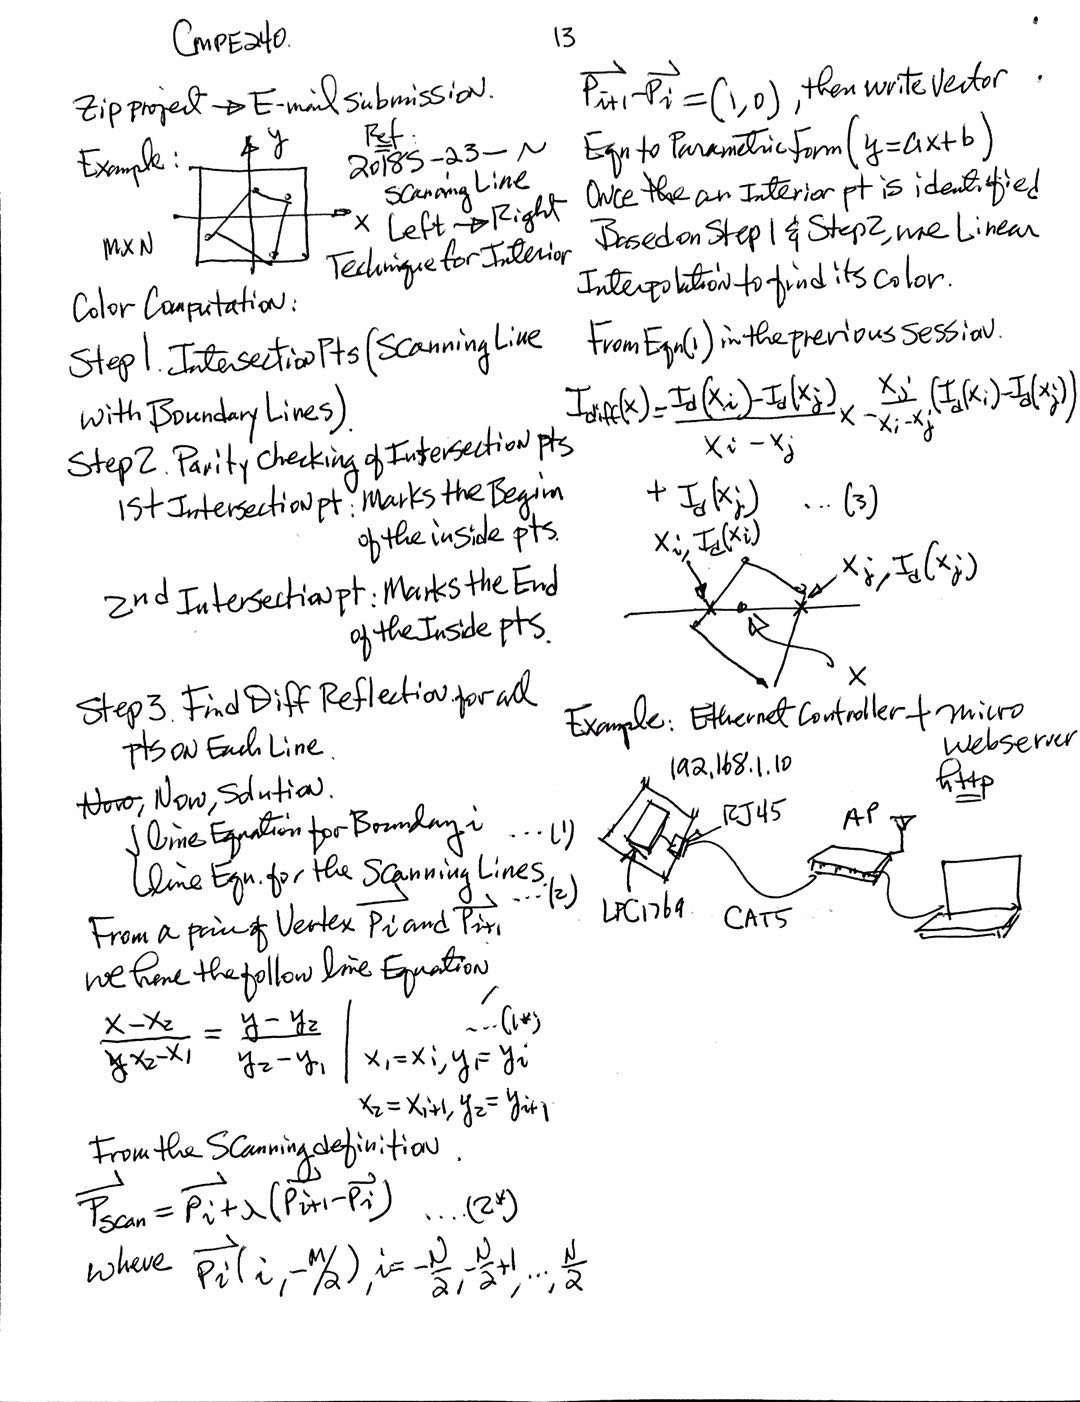 CMPE240.
13
Zip project → E-mail Submission.
Example:
y
x
MXN
Ref.
2018S-23-~
Scanning Line
Left → Right
Technique for Interior
Color Computation:
Step 1. Intersection Pts (Scanning Line
with Boundary Lines)
Step 2. Parity Checking of Intersection pts
1st Intersection pt: Marks the Begin
of the inside pts.
2nd Intersection pt: Marks the End
of the Inside pts.
Step 3. Find Diff Reflection for all
pts on Each Line.
Now, Now, Solution.
{ Line Equation for Boundary i ...(1)
Line Eqn. for the Scanning Lines. ...(2)
From a pair of Vertex Pi and Pi+1
we have the follow line Equation
...(1*)
(x-x2)/(x2-x1) = (y-y2)/(y2-y1) | x1=xi, y1=yi
x2=xi+1, y2=yi+1
From the Scanning definition.
Pscan = Pi+λ(Pi+1-Pi) ....(2*)
where Pi(i, -M/2), i= -N/2, -N/2+1, ..., N/2
Pi+1-Pi = (1,0), then write Vector
Eqn to Parametric Form (y=ax+b)
Once the an Interior pt is identified
Based on Step 1 & Step 2, use Linear
Interpolation to find its color.
From Eqn(1) in the previous Session.
Idiff(x)= (Id(xi)-Id(xj))/(xi-xj) x - xj/(xi-xj) (Id(xi)-Id(xj))
+ Id(xj) ... (3)
xi, Id(xi)
xj, Id(xj)
x
Example: Ethernet Controller + micro
Webserver
http
192.168.1.10
RJ45
AP
LPC1769
CAT5